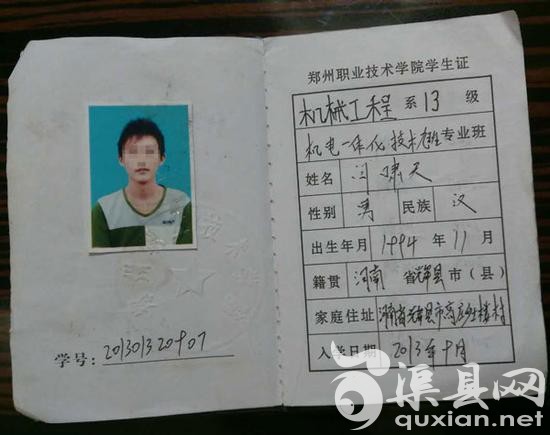 学号：201301320907
郑州职业技术学院学生证
机械工程 系 13 级
机电一体化技术 专业班
姓名 闫啸天
性别 男 民族 汉
出生年月 1994 年 11 月
籍贯 河南 省 辉县 市（县）
家庭住址 河南省辉县市高庄乡 楼村
入学日期 2013年9月
渠县网
quxian.net